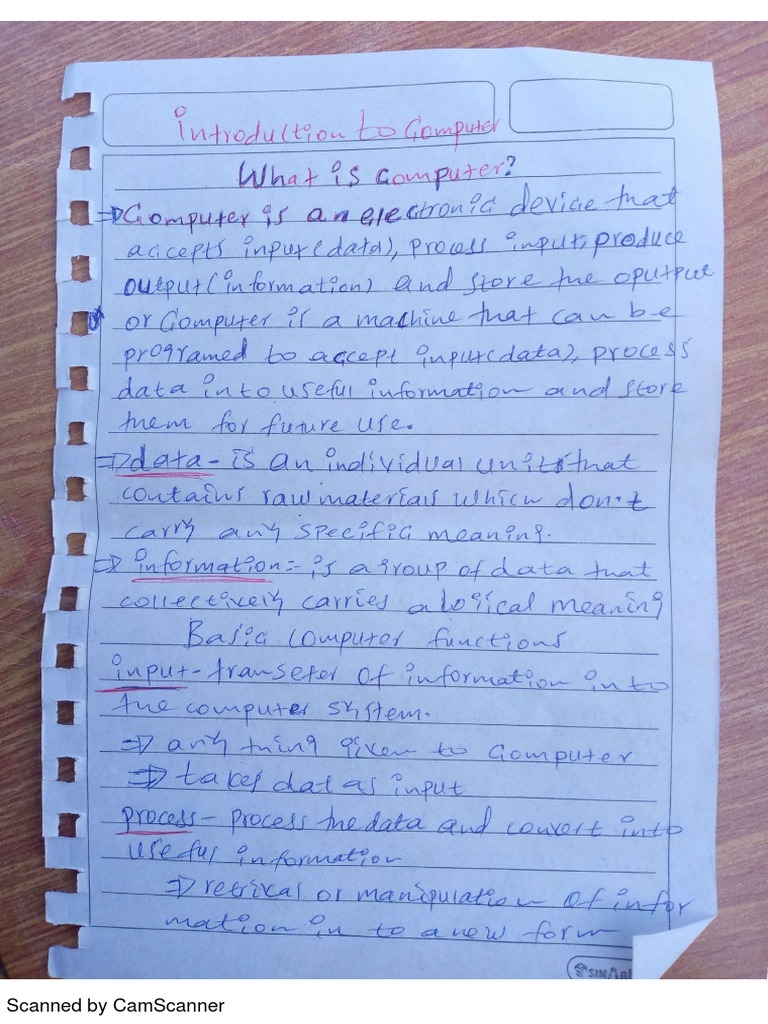 introduction to Computer
What is computer?
⇒Computer is an electronic device that
accepts input(data), process input, produce
output(information) and store the oputput
or Computer is a machine that can be
programed to accept input(data), process
data into useful information and store
them for future use.
⇒data - is an individual units that
contains raw materials which don't
carry any specific meaning.
⇒ information:- is a group of data that
collectively carries a logical meaning
Basic computer functions
input - transeter of information in to
the computer system.
⇒ any thing given to computer
⇒ takes dat as input
process - process the data and convert into
useful information
⇒ retrival or manipulation of infor
mation in to a new form
SINAR
Scanned by CamScanner